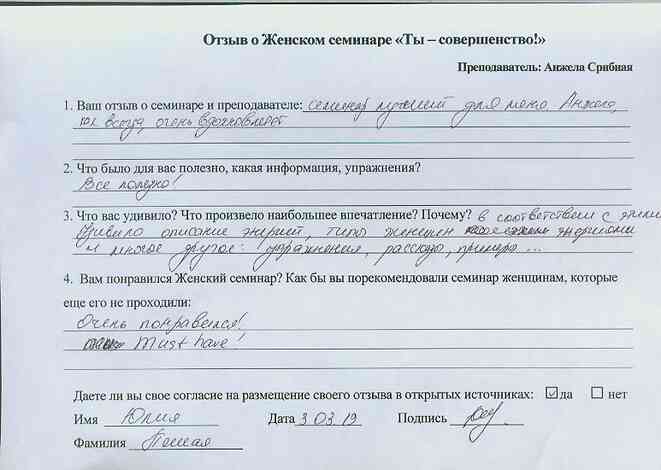 Отзыв о Женском семинаре «Ты – совершенство!»
Преподаватель: Анжела Срибная
1. Ваш отзыв о семинаре и преподавателе: семинар нужный для меня Анжела,
как всегда, очень вдохновляет
2. Что было для вас полезно, какая информация, упражнения?
Все полезно!
3. Что вас удивило? Что произвело наибольшее впечатление? Почему? в соответствии с этими
Удивило описание энергий, типы женщин энергиями
и многое другое: упражнения, рассказы, примеры ...
4. Вам понравился Женский семинар? Как бы вы порекомендовали семинар женщинам, которые
еще его не проходили:
Очень понравился!
Must have!
Даете ли вы свое согласие на размещение своего отзыва в открытых источниках: ☑ да ☐ нет
Имя Юлия Дата 3 03 19 Подпись
Фамилия